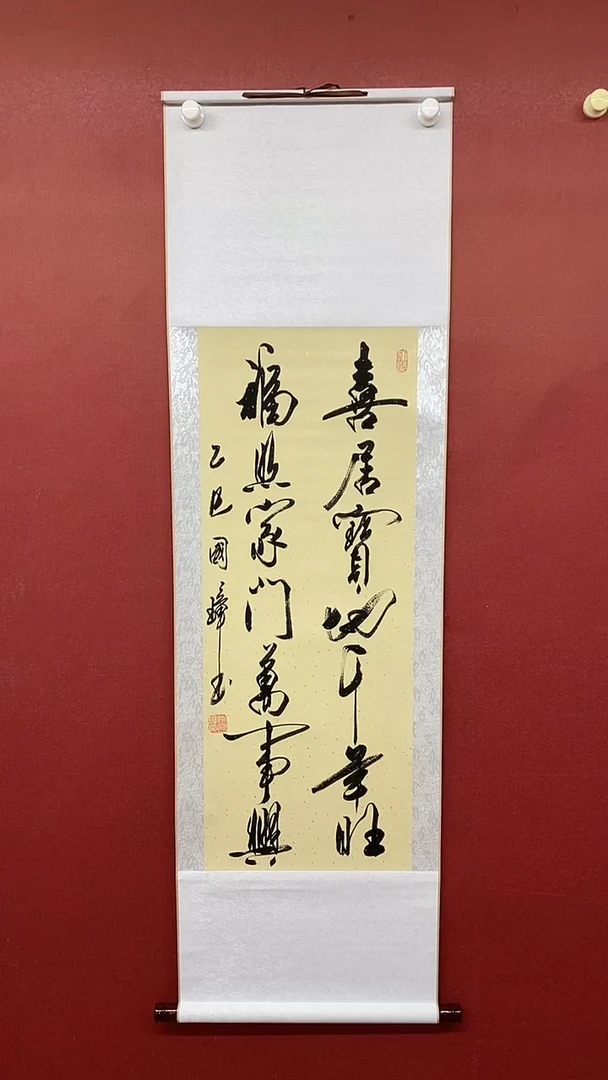 喜居寶地千年旺
福照家門萬事興
乙巳國璋